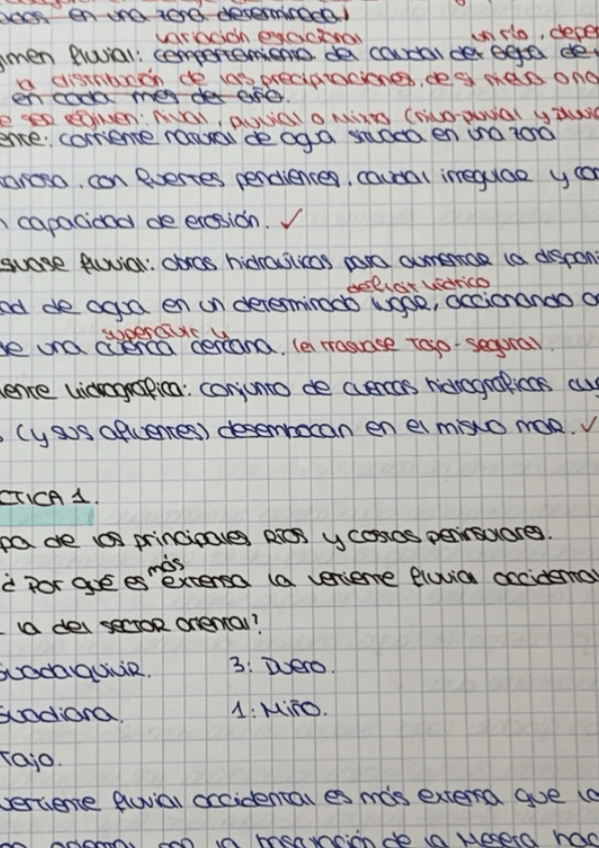 en una zona determinada)
variación estacional un río, depen
gimen fluvial: comportamiento del caudal del agua de
la distribución de las precipitaciones, de si nieva o no
en cada mes del año.
régimen: nival, pluvial o mixto (nivo-pluvial y pluvio
ente: corriente natural de agua situada en una zona
tañosa, con fuertes pendientes, caudal irregular y con
capacidad de erosión. ✓
svase fluvial: obras hidraúlicas para aumentar la disponi
deficit hídrico
ad de agua en un determinado lugar, accionando
superávit y
de una cuenca cercana. (el trasvase Tajo-Segura)
iente hidrográfica: conjunto de cuencas hidrográficas cuy
(y sus afluentes) desembocan en el mismo mar. ✓
CTICA 1.
pa de los principales Ríos y costas peninsulares.
más
¿Por qué es extensa la vertiente fluvial occidental
la del sector oriental?
Guadalquivir. 3: Duero.
Guadiana. 1: Miño.
Tajo.
vertiente fluvial occidental es más extensa que la
oriental con la basculación de la Meseta hac